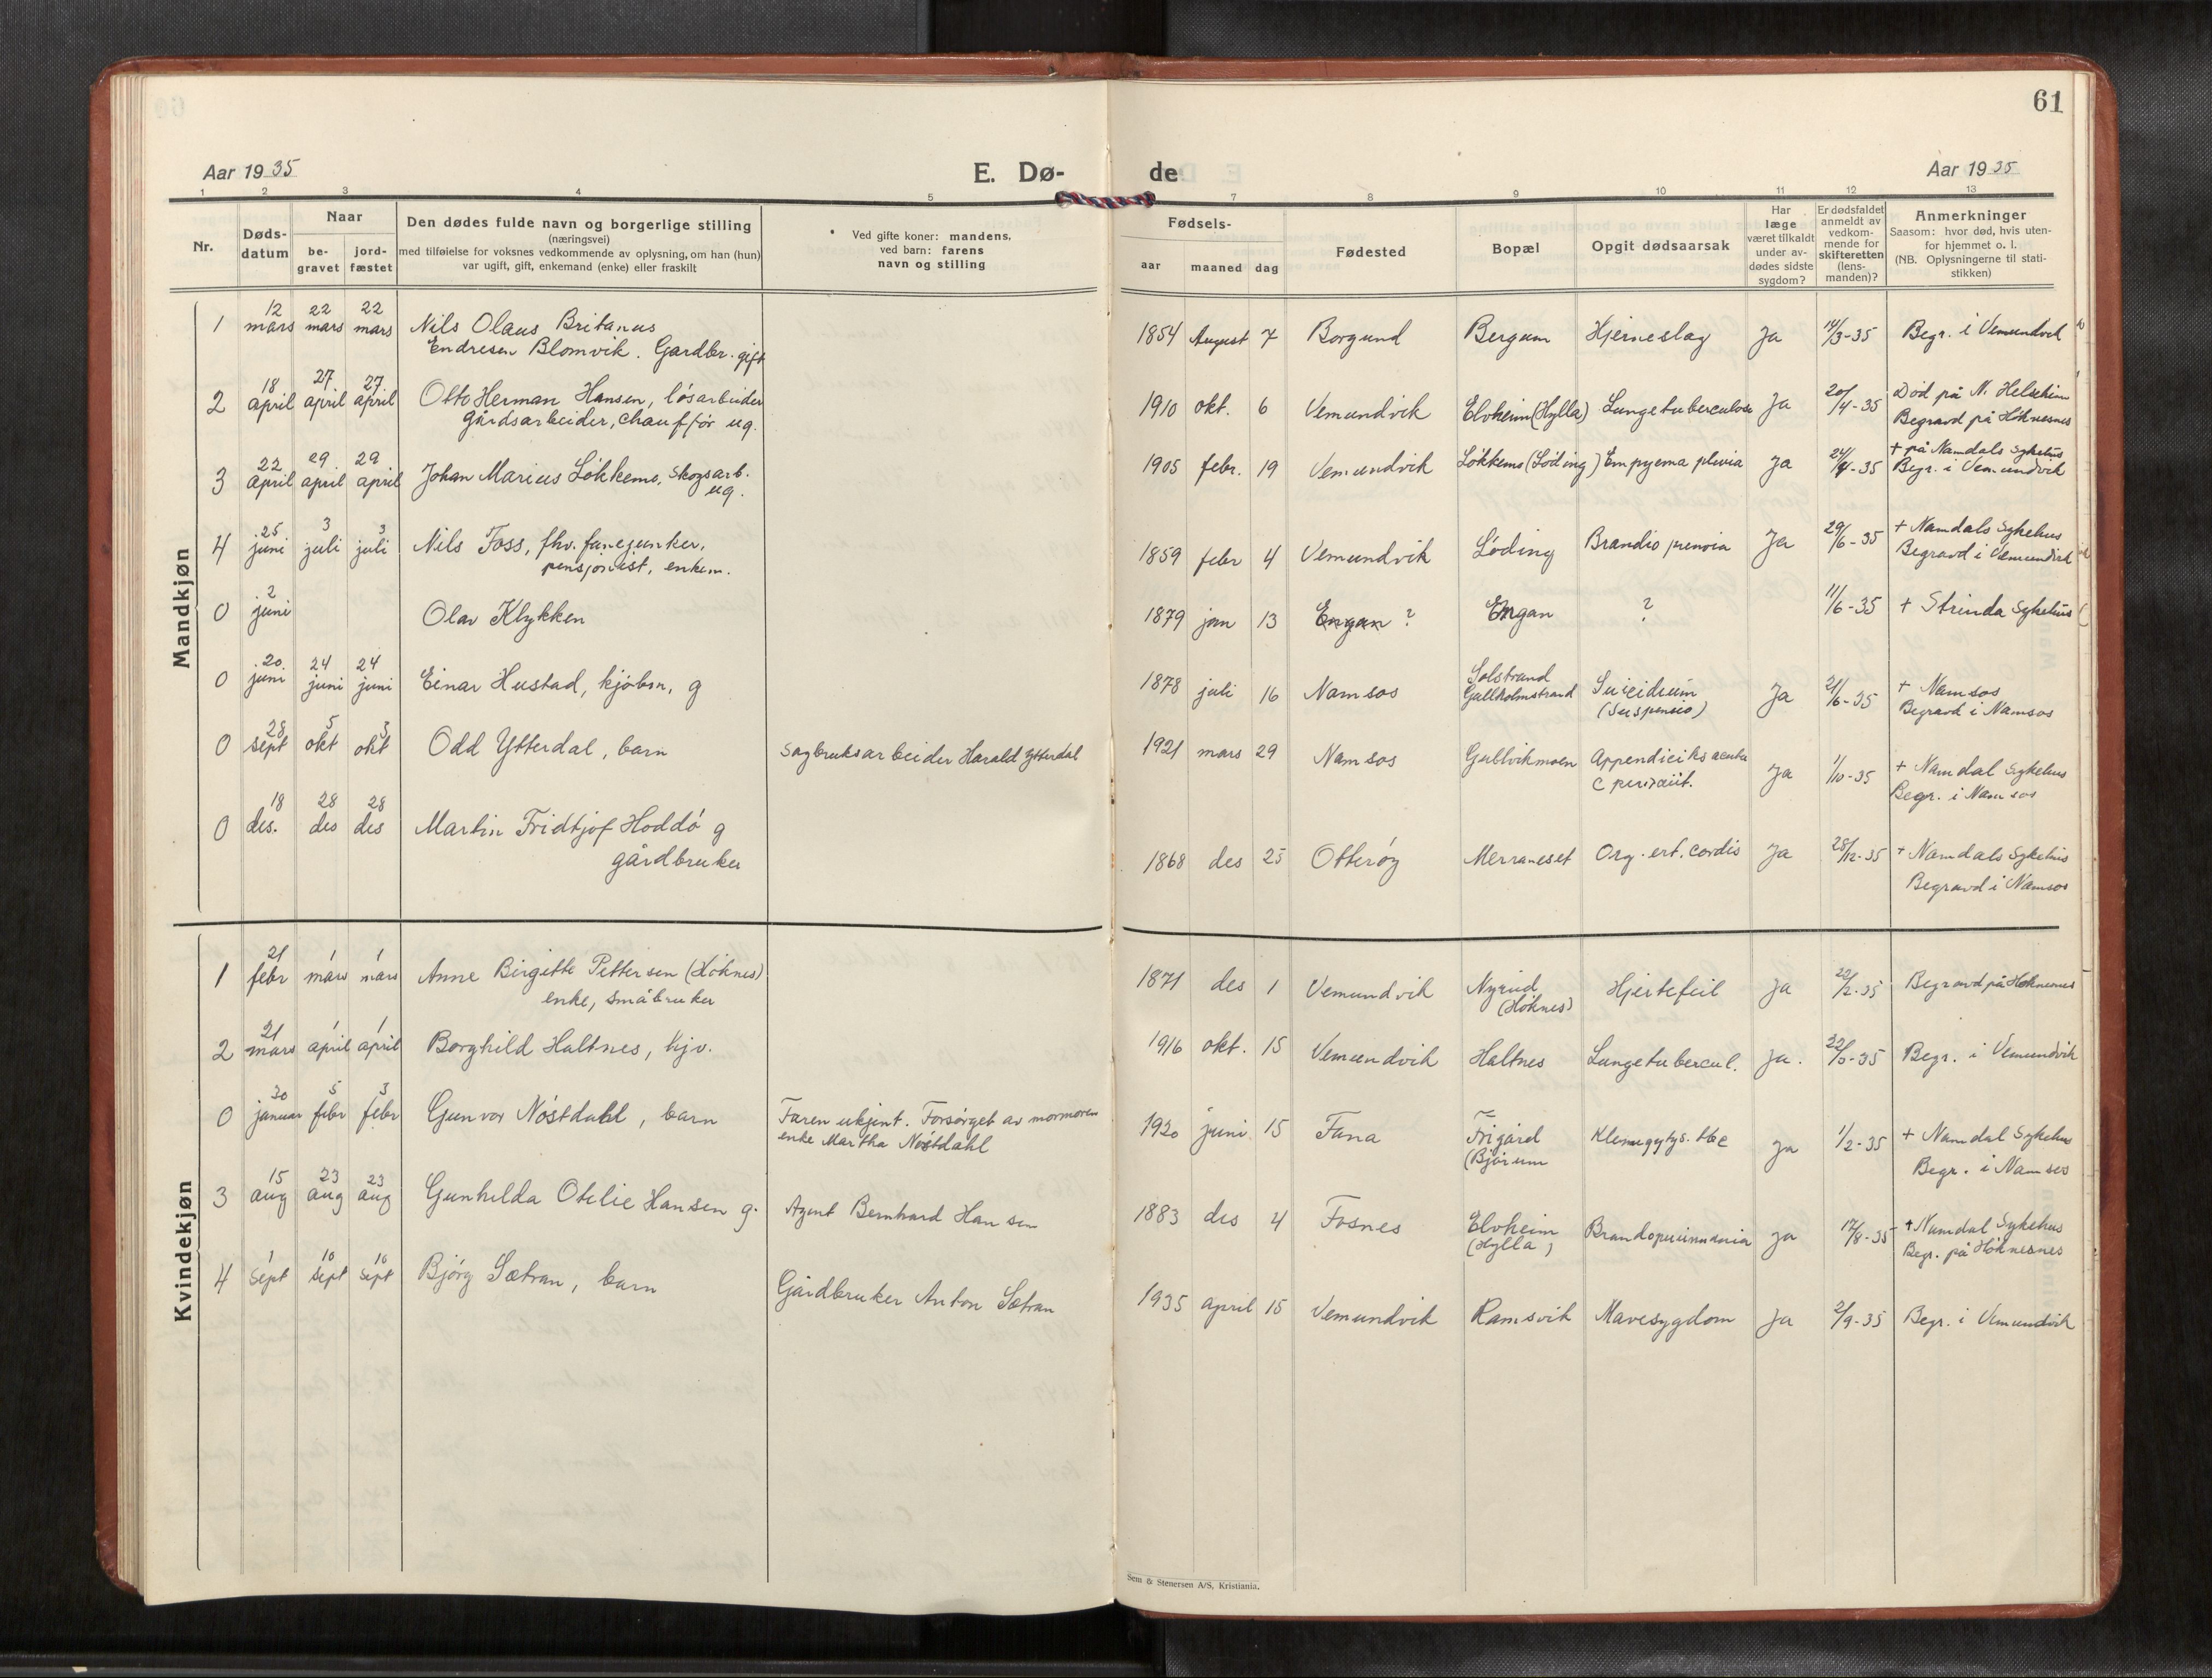 61
Aar 1935
E. Dø-
de
Aar 1935
1 2 3 4 5 7 8 9 10 11 12 13
Nr.
Døds-
datum
Naar
be-
gravet
jord-
fæstet
Den dødes fulde navn og borgerlige stilling
(næringsvei)
med tilføielse for voksnes vedkommende av oplysning, om han (hun)
var ugift, gift, enkemand (enke) eller fraskilt
Ved gifte koner: mandens,
ved barn: farens
navn og stilling
Fødsels-
aar maaned dag
Fødested
Bopæl
Opgit dødsaarsak
Har
læge
været tilkaldt
under av-
dødes sidste
sygdom?
Er dødsfaldet
anmeldt av
vedkom-
mende for
skifteretten
(lens-
manden)?
Anmerkninger
Saasom: hvor død, hvis uten-
for hjemmet o. l.
(NB. Oplysningerne til stati-
stikken)
Mandkjøn
1 12 mars 22 mars 22 mars Nils Olaus Britanus
Endresen Blomvik. Gardbr. gift
1854 August 7 Borgund Bergum Hjerneslag Ja 14/3-35 Begr. i Vemundvik
2 18 april 27 april 27 april Otto Herman Hansen, løsarbeider
gårdsarbeider, chauffør ug.
1910 okt. 6 Vemundvik Elvheim (Hylla) Lungetuberculose Ja 20/4-35 Død på N. Helseheim
Begravd på Høknesnes
3 22 april 29 april 29 april Johan Marius Løkkemo, skogsarb.
ug.
1905 febr. 19 Vemundvik Løkkemo (Løding) Empyema Ja 24/4-35 + på Namdals Sykehus
Begr. i Vemundvik
4 25 juni 3 juli 3 juli Nils Foss, fhv. fanejunker,
pensjonist, enkem.
1859 febr 4 Vemundvik Løding Ja 29/6-35 + Namdals Sykehus
Begravd i Vemundvik
0 2 juni Olav Klykken
1879 jan 13 Engan ? Engan ? 11/6-35 + Strinda Sykehus
0 20 juni 24 juni 24 juni Einar Hustad, kjøbm, g
1878 juli 16 Namsos Solstrand
Gullholmstrand Suicidium
(Suspensio) Ja 21/6-35 + Namsos
Begravd i Namsos
0 28 sept 5 okt 5 okt Odd Ytterdal, barn
Sagbruksarbeider Harald Ytterdal
1921 mars 29 Namsos Gullvikmoen Ja 1/10-35 + Namdal Sykehus
Begr. i Namsos
0 18 des. 28 des 28 des Martin Fridtjof Hoddø g
gårdbruker
1868 des 25 Otterøy Merraneset Org. cordis Ja 28/12-35 + Namdals Sykehus
Begravd i Namsos
Kvindekjøn
1 21 febr 1 mars 1 mars Anne Birgitte Pettersen (Høknes)
enke, småbruker
1871 des 1 Vemundvik Nyrud
(Høknes) Hjertefeil Ja 22/2-35 Begravd på Høknesnes
2 21 mars 1 april 1 april Borghild Haltnes, hjv.
1916 okt. 15 Vemundvik Haltnes Lungetubercul. Ja. 22/3-35 Begr. i Vemundvik
0 30 januar 5 febr 5 febr Gunvor Nøstdahl, barn
Faren ukjent. Forsørget av mormoren
enke Martha Nøstdahl
1920 juni 15 Fana Frigård
(Bjørum tbc Ja 1/2-35 + Namdal Sykehus
Begr. i Namsos
3 15 aug 23 aug 23 aug Gunhilda Otilie Hansen g.
Agent Bernhard Hansen
1883 des 4 Fosnes Elvheim
(Hylla) Ja 17/8-35 + Namdal Sykehus
Begr. på Høknesnes
4 1 sept 10 sept 10 sept Bjørg Sætran, barn
Gårdbruker Anton Sætran
1935 april 15 Vemundvik Ramsvik Mavesygdom Ja 2/9-35 Begr. i Vemundvik
Sem & Stenersen A/S, Kristiania.